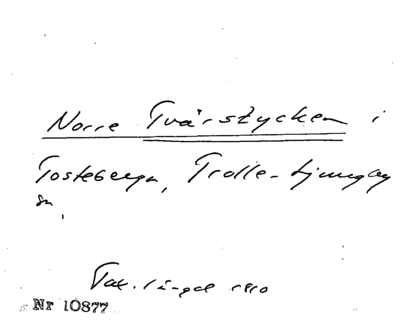 Norre Tvärstycken i
Tosteberga, Trolle-Ljungby
sn.
Tax. längd 1810
Nr 10877